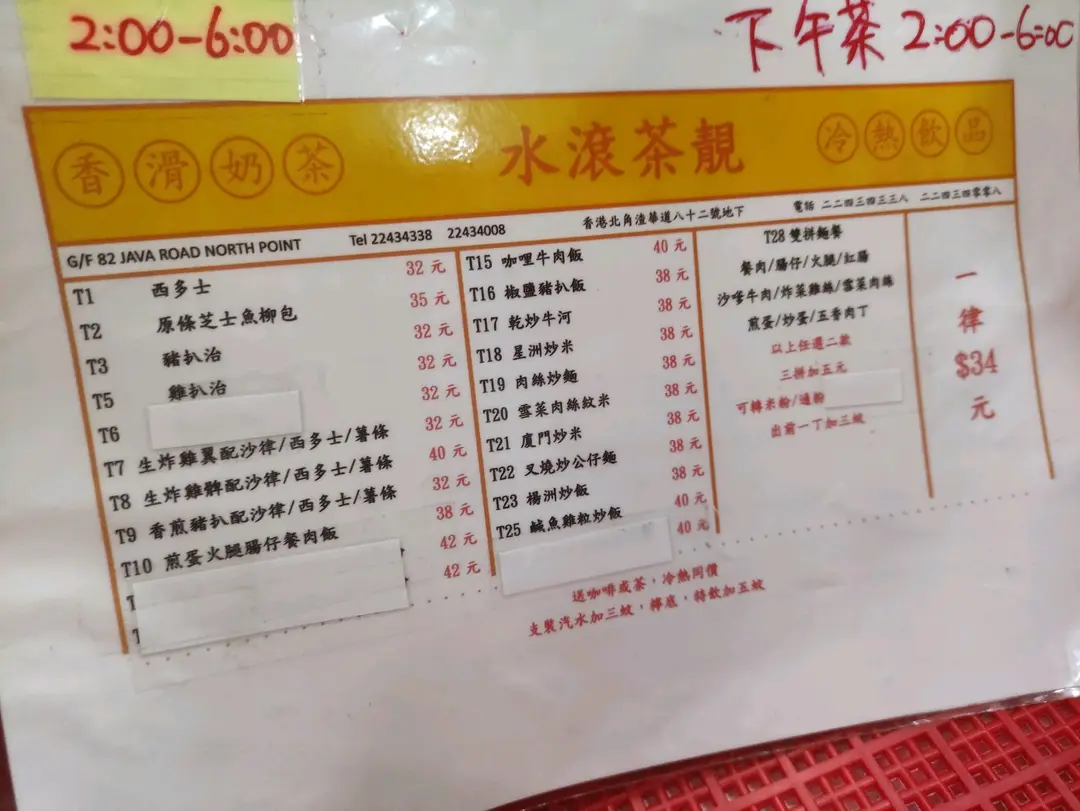 2:00-6:00
下午茶 2:00-6:00
香滑奶茶
水滾茶靚
冷熱飲品
G/F 82 JAVA ROAD NORTH POINT Tel 22434338 22434008
香港北角渣華道八十二號地下 電話 二二四三四三三八 二二四三四零零八
T1 西多士 32 元
T2 原條芝士魚柳包 35 元
T3 豬扒治 32 元
T5 雞扒治 32 元
T6 32 元
T7 生炸雞翼配沙律/西多士/薯條 32 元
T8 生炸雞髀配沙律/西多士/薯條 40 元
T9 香煎豬扒配沙律/西多士/薯條 32 元
T10 煎蛋火腿腸仔餐肉飯 38 元
42 元
42 元
T15 咖哩牛肉飯 40 元
T16 椒鹽豬扒飯 38 元
T17 乾炒牛河 38 元
T18 星洲炒米 38 元
T19 肉絲炒麵 38 元
T20 雪菜肉絲炆米 38 元
T21 廈門炒米 38 元
T22 叉燒炒公仔麵 38 元
T23 楊洲炒飯 38 元
T25 鹹魚雞粒炒飯 40 元
40 元
T28 雙拼麵餐
餐肉/腸仔/火腿/紅腸
沙嗲牛肉/炸菜雞絲/雪菜肉絲
煎蛋/炒蛋/五香肉丁
以上任選二款
三拼加五元
可轉米粉/通粉
出前一丁加三蚊
一律$34元
送咖啡或茶，冷熱同價
支裝汽水加三蚊，檸底，特飲加五蚊